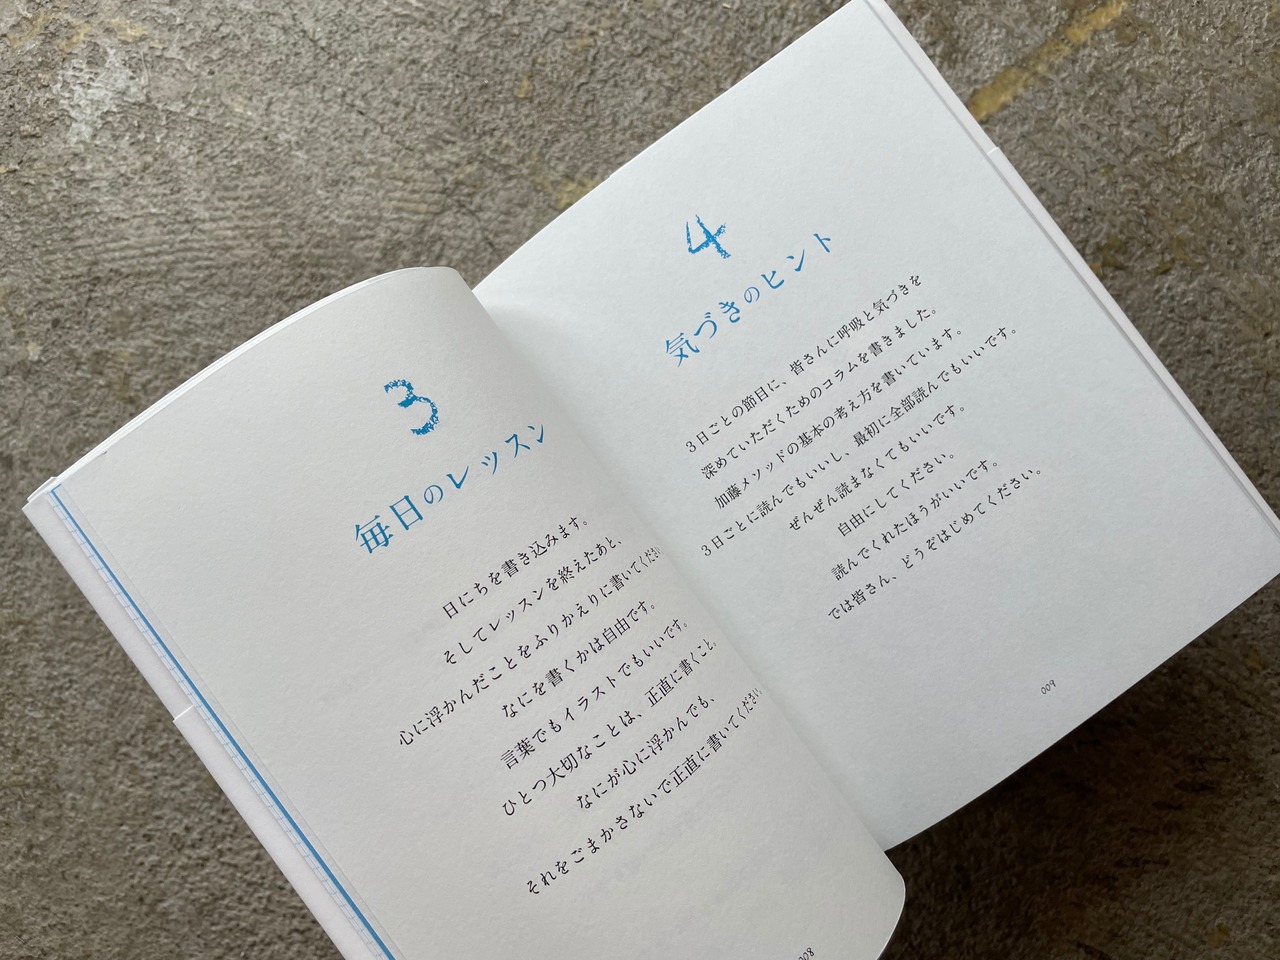 3
毎日のレッスン
日にちを書き込みます。
そしてレッスンを終えたあと、
心に浮かんだことをふりかえりに書いてください
なにを書くかは自由です。
言葉でもイラストでもいいです。
ひとつ大切なことは、正直に書くこと。
なにが心に浮かんでも、
それをごまかさないで正直に書いてください。
008
4
気づきのヒント
3日ごとの節目に、皆さんに呼吸と気づきを
深めていただくためのコラムを書きました。
加藤メソッドの基本の考え方を書いています。
3日ごとに読んでもいいし、最初に全部読んでもいいです。
ぜんぜん読まなくてもいいです。
自由にしてください。
読んでくれたほうがいいです。
では皆さん、どうぞはじめてください。
009